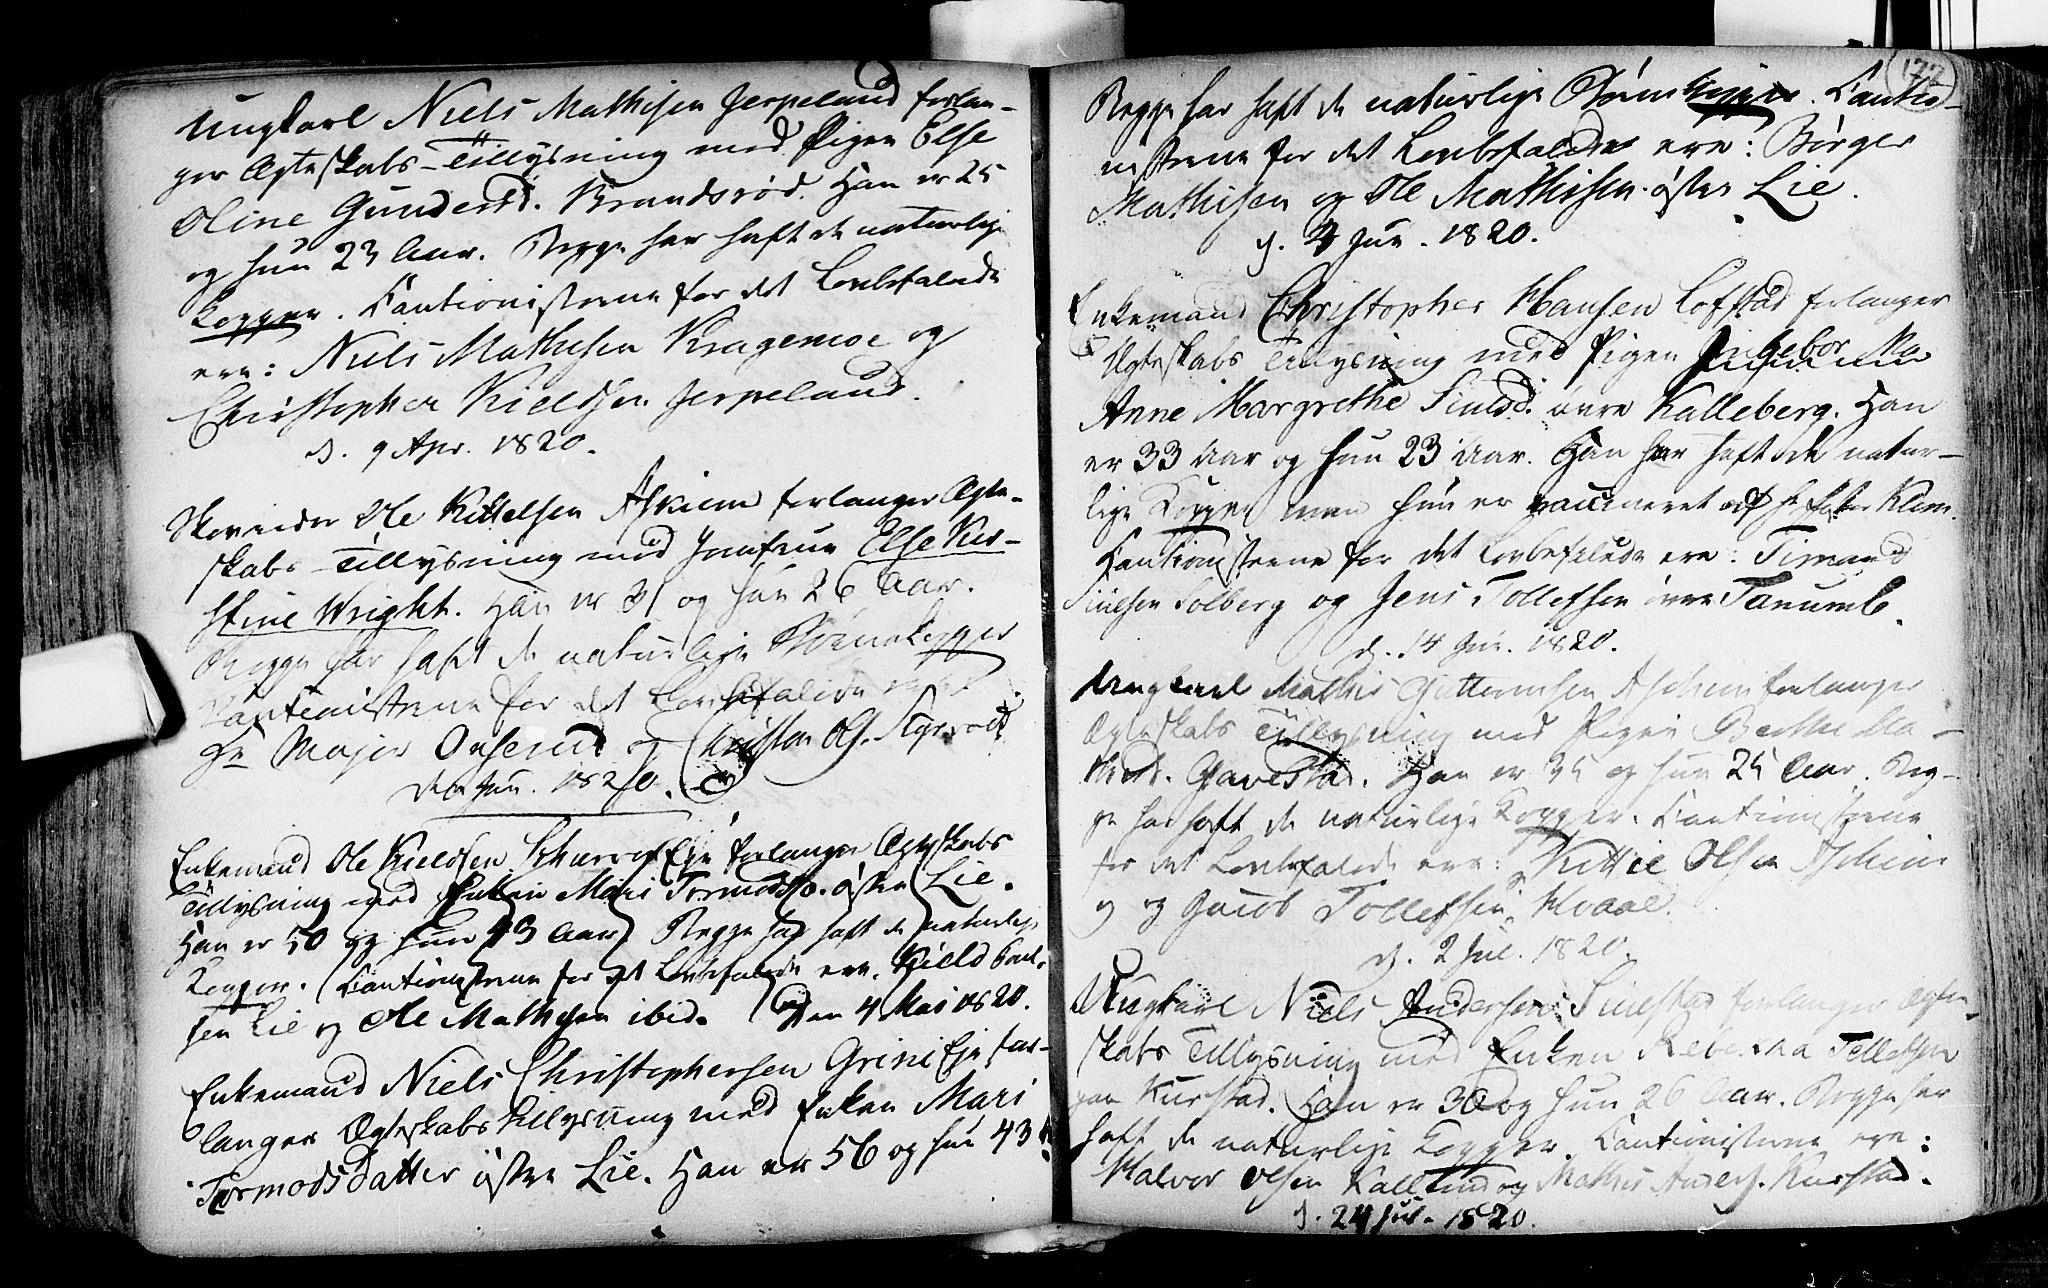 Ungkarl Niels Mathisen Jerpeland forlan-
ger Ægteskabs-Tillysning med Pigen Else
Oline Gundersd. Brandsrød. Han er 25
og hun 23 Aar. Begge har haft de naturlige
Kopper. Cautionisterne for det Lovbefalede
ere: Niels Mathisen Kragemoe og
Christopher Kieldsen Jerpeland.
d. 9 Apr. 1820.
Ole Kittelsen Askiem forlanger Ægte-
skabs-Tillysning med Jomfrue Else Kir-
stine Wright. Han er 31 og hun 26 Aar.
Begge har haft de naturlige Børnekopper
Cautionisterne for det Lovbefalede ere
Hr Major og Christen Ols.
Jun. 1820.
Enkemand Ole Kieldsen Eje forlanger Ægteskabs
Tillysning med Enken Mari Tormodsd. østre Lie.
Han er 50 og hun 43 Aar. Begge har haft de naturlige
Kopper. Cautionisterne for det Lovbefalede ere. Kield
sen Lie og Ole Mathisen ibid. Den 4 Mai 1820.
Enkemand Niels Christophersen Grini Eje for-
langer Ægteskabs Tillysning med Enken Mari
Tormodsdatter østre Lie. Han er 56 og hun 43
177
Begge har haft de naturlige Børnekopper. Cautio-
nisterne for det Lovbefalede ere: Børger
Mathisen og Ole Mathisen østre Lie.
d. 4 Jun. 1820.
Enkemand Christopher Hansen Lofstad forlanger
Ægteskabs Tillysning med Pigen
Anne Margrethe Simsd. øvre Kalleberg. Han
er 33 Aar og hun 23 Aar. Han har haft de natur-
lige Kopper men hun er vaccineret af Hr Klem.
Cautionisterne for det Lovbefalede ere: Simand
Solberg og Jens Tollefsen øvre Tanumb.
d. 14 Jun. 1820.
Ungkarl Mathis Guttormsen Aschim forlanger
Ægteskabs Tillysning med Pigen Berthe Ma-
thisd. Gavestad. Han er 35 og hun 25 Aar. Beg-
ge har haft de naturlige Kopper. Cautionisterne
for det Lovbefalede ere: Kittil Olsen Aschim
og og Jacob Tollefsen Hvaal.
d. 2 Jul. 1820.
Ungkarl Niels Andersen forlanger Ægte-
skabs Tillysning med Enken Rebecka Tollefsen
paa Kurstad. Han er 30 og hun 26 Aar. Begge har
haft de naturlige Kopper. Cautionisterne ere:
Halvor Olsen og Mathis Anders. Kurstad.
d. 24 Jul. 1820.